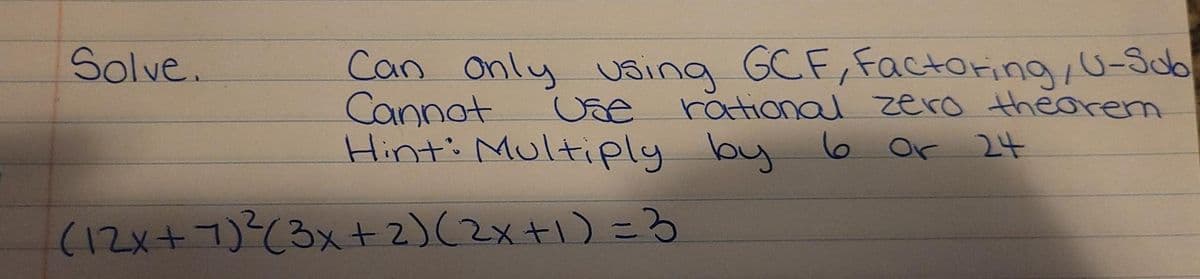 Solve.
Can only using GCF, Factoring, U-Sub
Cannot Use rational zero theorem
Hint: Multiply by 6 or 24
(12x+7)²(3x+2)(2x+1)=3